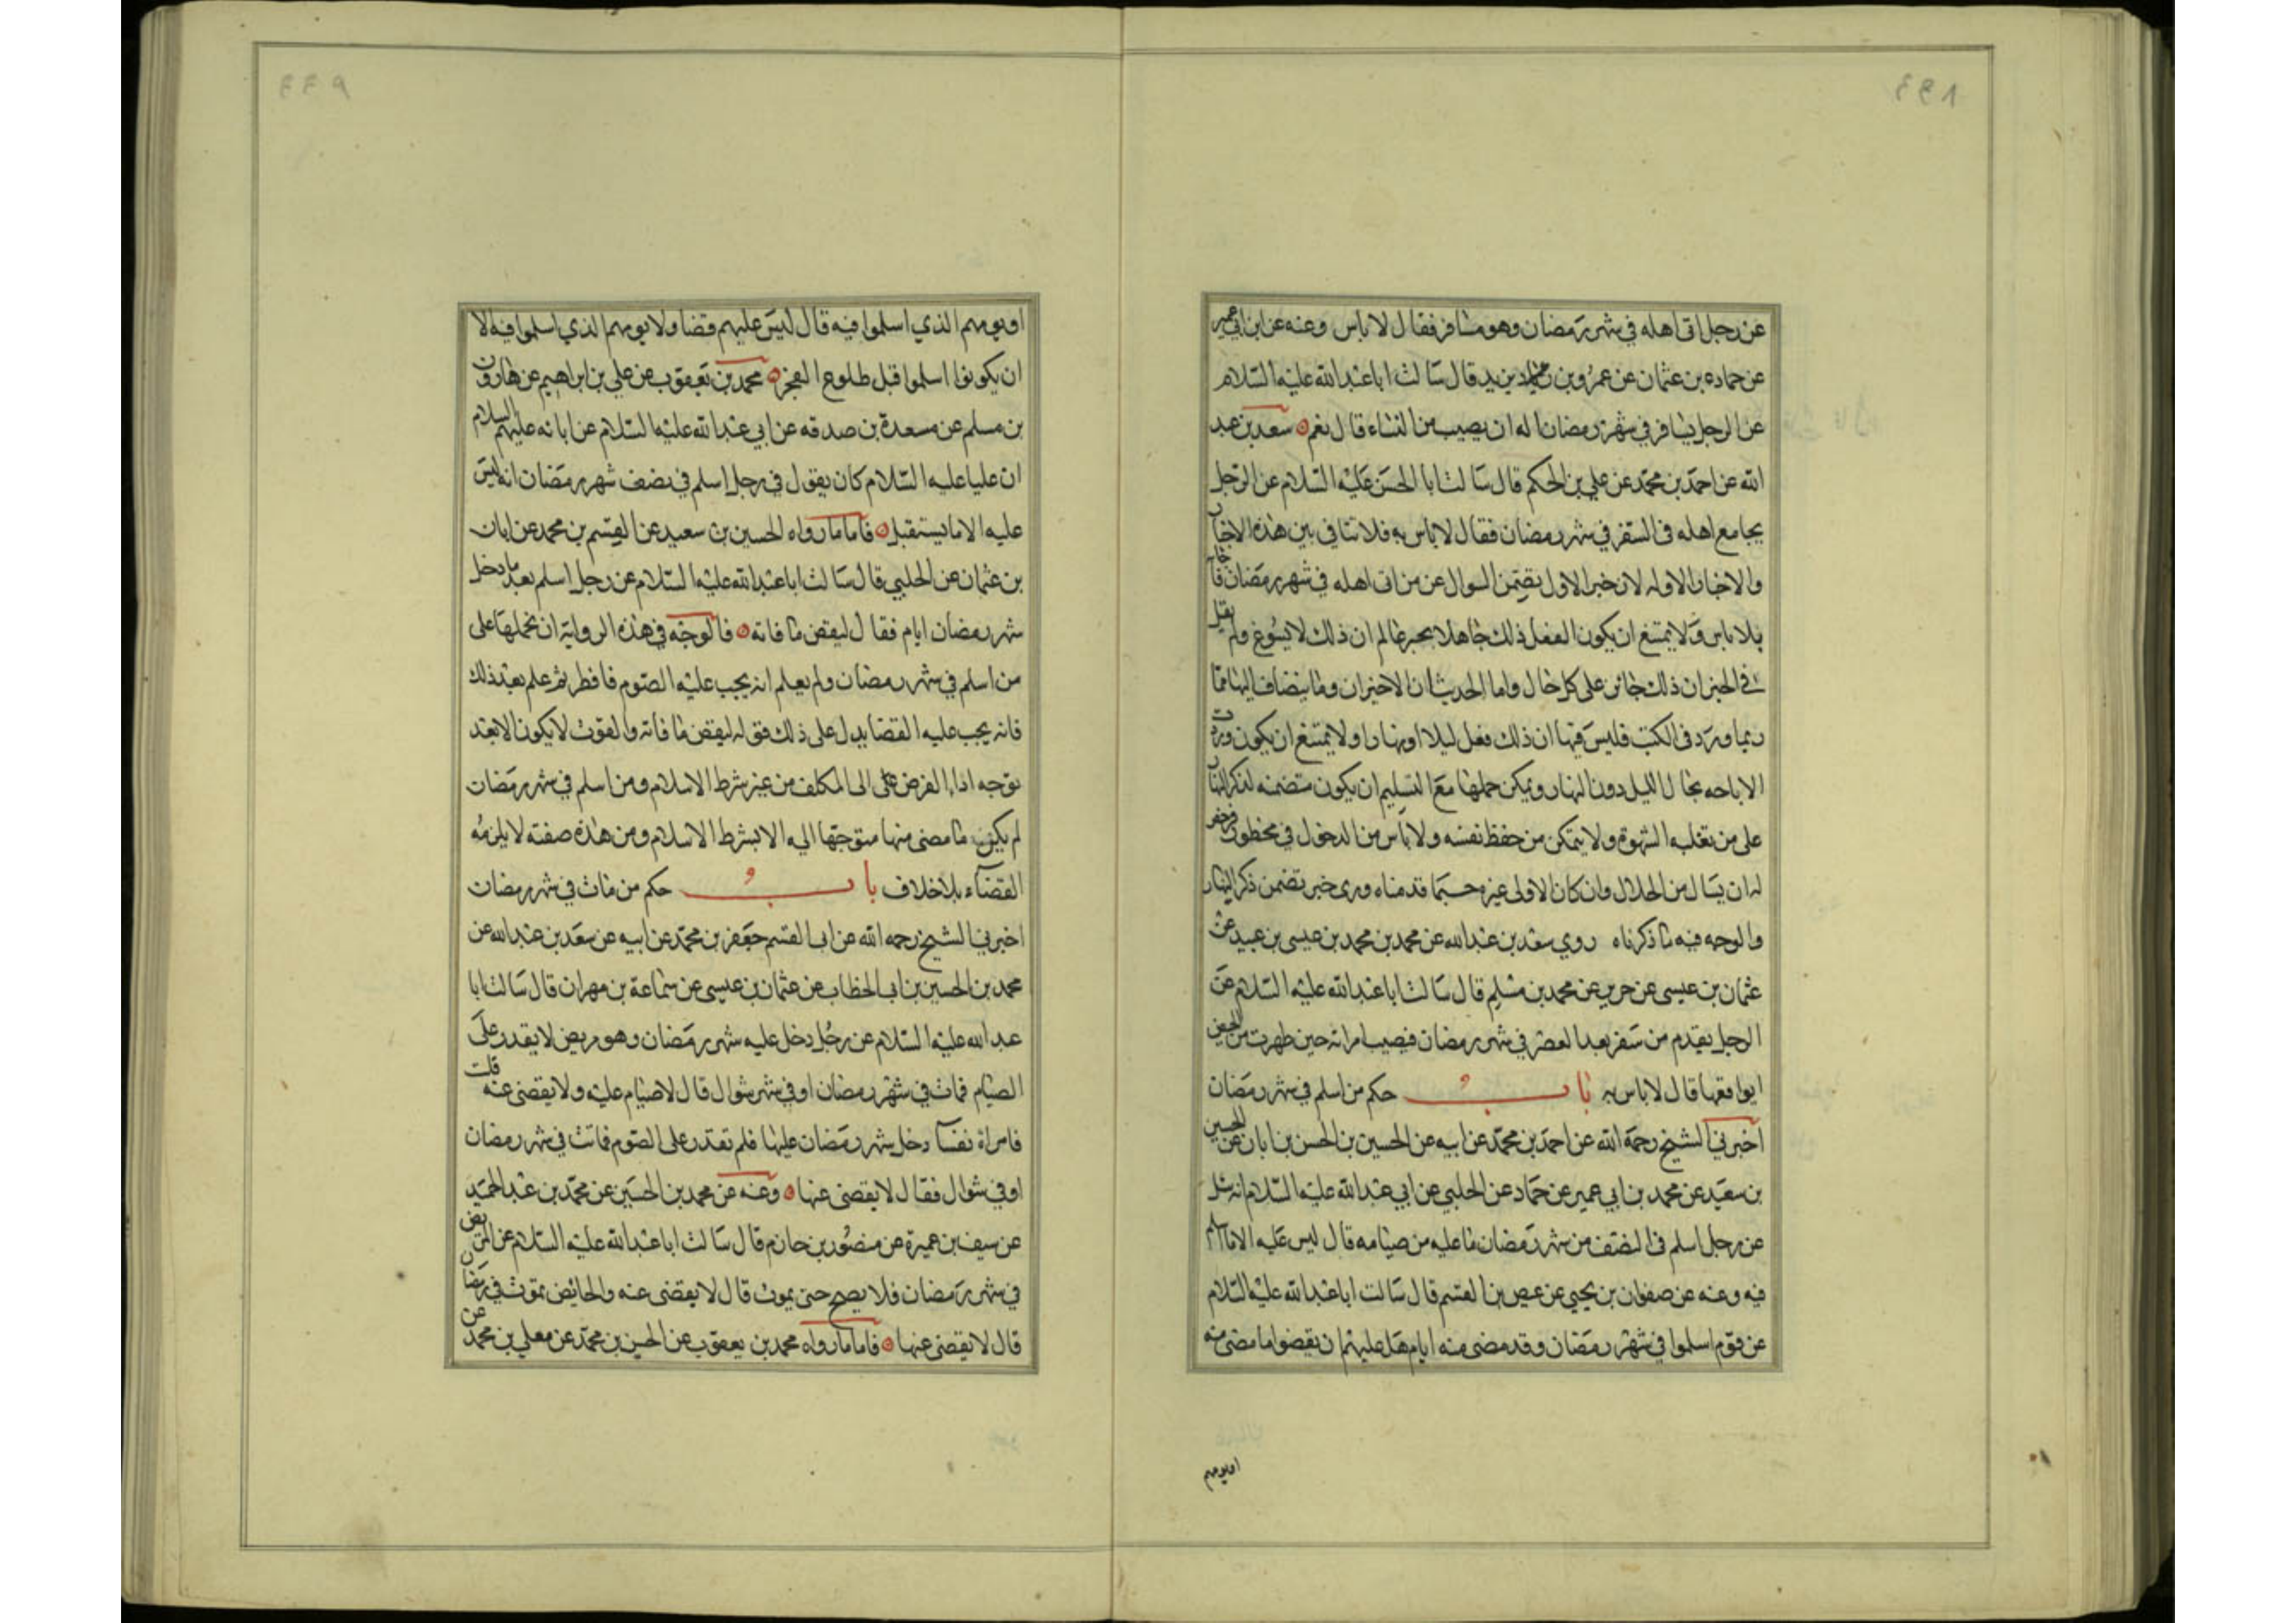 عن رجل اتى اهله في شهر رمضان وهو مسافر فقال لا باس وعنه عن ابن ابي عمير
عن حماد بن عثمان عن عمرو بن يزيد قال سالت ابا عبد الله عليه السلام
عن الرجل يسافر في شهر رمضان اله ان يصيب من النساء قال نعم سعد بن عبد
الله عن احمد بن محمد عن علي بن الحكم قال سالت ابا الحسن عليه السلام عن الرجل
يجامع اهله في السفر في شهر رمضان فقال لا باس به فلا تنافي بين هذه الاخبار
والاخبار الاوله لان خبر الاول يتضمن السوال عن من اتى اهله في شهر رمضان
بلا باس ولا يمتنع ان يكون الفعل ذلك جاهلا بحبر عالم ان ذلك لا يسوغ ولم يقل
في الخبر ان ذلك جائز على كل حال واما الحديثان الاخيران وما ينضاف اليها مما
ربما ورد في الكتب فليس فيها ان ذلك فعل ليلا او نهارا ولا يمتنع ان يكون وردت
الاباحه بحال الليل دون النهار ويمكن حملها مع التسليم ان يكون متضمنه لذكر النهار
على من تغلبه الشهوة ولا يتمكن من حفظ نفسه ولا باس من الدخول في محظور
له ان يسال من الحلال وان كان الاولى غيره حسبما قدمناه وروى خبر تضمن ذكر النهار
والوجه فيه ما ذكرناه روي سعد بن عبد الله عن محمد بن محمد بن عيسى بن عبيد عن
عثمان بن عيسى عن حريز عن محمد بن مسلم قال سالت ابا عبد الله عليه السلام عن
الرجل يقدم من سفر بعد العصر في شهر رمضان فيصيب امراته حين طهرت من الحيض
ايواقعها قال لا باس به باب حكم من اسلم في شهر رمضان
اخبرني الشيخ رحمة الله عن احمد بن محمد عن ابيه عن الحسين بن الحسن بن ابان عن الحسين
بن سعيد عن محمد بن ابي عمير عن حماد عن الحلبي عن ابي عبد الله عليه السلام انه سئل
عن رجل اسلم في النصف من شهر رمضان ما عليه من صيامه قال ليس عليه الا ما اسلم
فيه وعنه عن صفوان بن يحيى عن عيص بن القسم قال سالت ابا عبد الله عليه السلام
عن قوم اسلموا في شهر رمضان وقد مضى منه ايام هل عليهم ان يقضوا ما مضى منه
او يومهم
او يومهم الذي اسلموا فيه قال ليس عليهم قضا ولا يومهم الذي اسلموا فيه الا
ان يكونوا اسلموا قبل طلوع الفجر محمد بن يعقوب عن علي بن ابراهيم عن هارون
بن مسلم عن مسعدة بن صدقه عن ابي عبد الله عليه السلام عن ابائه عليهم السلام
ان عليا عليه السلام كان يقول في رجل اسلم في نصف شهر رمضان انه ليس
عليه الا ما يستقبل فاما ما رواه الحسين بن سعيد عن القسم بن محمد عن ابان
بن عثمان عن الحلبي قال سالت ابا عبد الله عليه السلام عن رجل اسلم بعد ما دخل
شهر رمضان ايام فقال ليقض ما فاته فالوجه في هذه الرواية ان نحملها على
من اسلم في شهر رمضان ولم يعلم انه يجب عليه الصوم فافطر ثم علم بعد ذلك
فانه يجب عليه القضا يدل على ذلك قوله ليقض ما فاته والفوت لا يكون الا بعد
توجه اداء الفرض الى المكلف من غير شرط الاسلام ومن اسلم في شهر رمضان
لم يكن ما مضى منها متوجها اليه الا بشرط الاسلام ومن هذه صفته لا يلزمه
القضاء بلا خلاف باب حكم من مات في شهر رمضان
اخبرني الشيخ رحمه الله عن ابي القسم جعفر بن محمد عن ابيه عن سعد بن عبد الله عن
محمد بن الحسين بن ابي الخطاب عن عثمان بن عيسى عن سماعة بن مهران قال سالت ابا
عبد الله عليه السلام عن رجل دخل عليه شهر رمضان وهو مريض لا يقدر على
الصيام فمات في شهر رمضان او في شهر شوال قال لا صيام عليه ولا يقضى عنه قلت
فامراة نفساء دخل شهر رمضان عليها فلم تقدر على الصوم فماتت في شهر رمضان
او في شوال فقال لا يقضى عنها وعنه عن محمد بن الحسين عن محمد بن عبد الحميد
عن سيف بن عميرة عن منصور بن حازم قال سالت ابا عبد الله عليه السلام عن المريض
في شهر رمضان فلا يصح حتى يموت قال لا يقضى عنه والحائض تموت في رمضان
قال لا يقضى عنها فاما ما رواه محمد بن يعقوب عن الحسن بن محمد عن معلى بن محمد عن